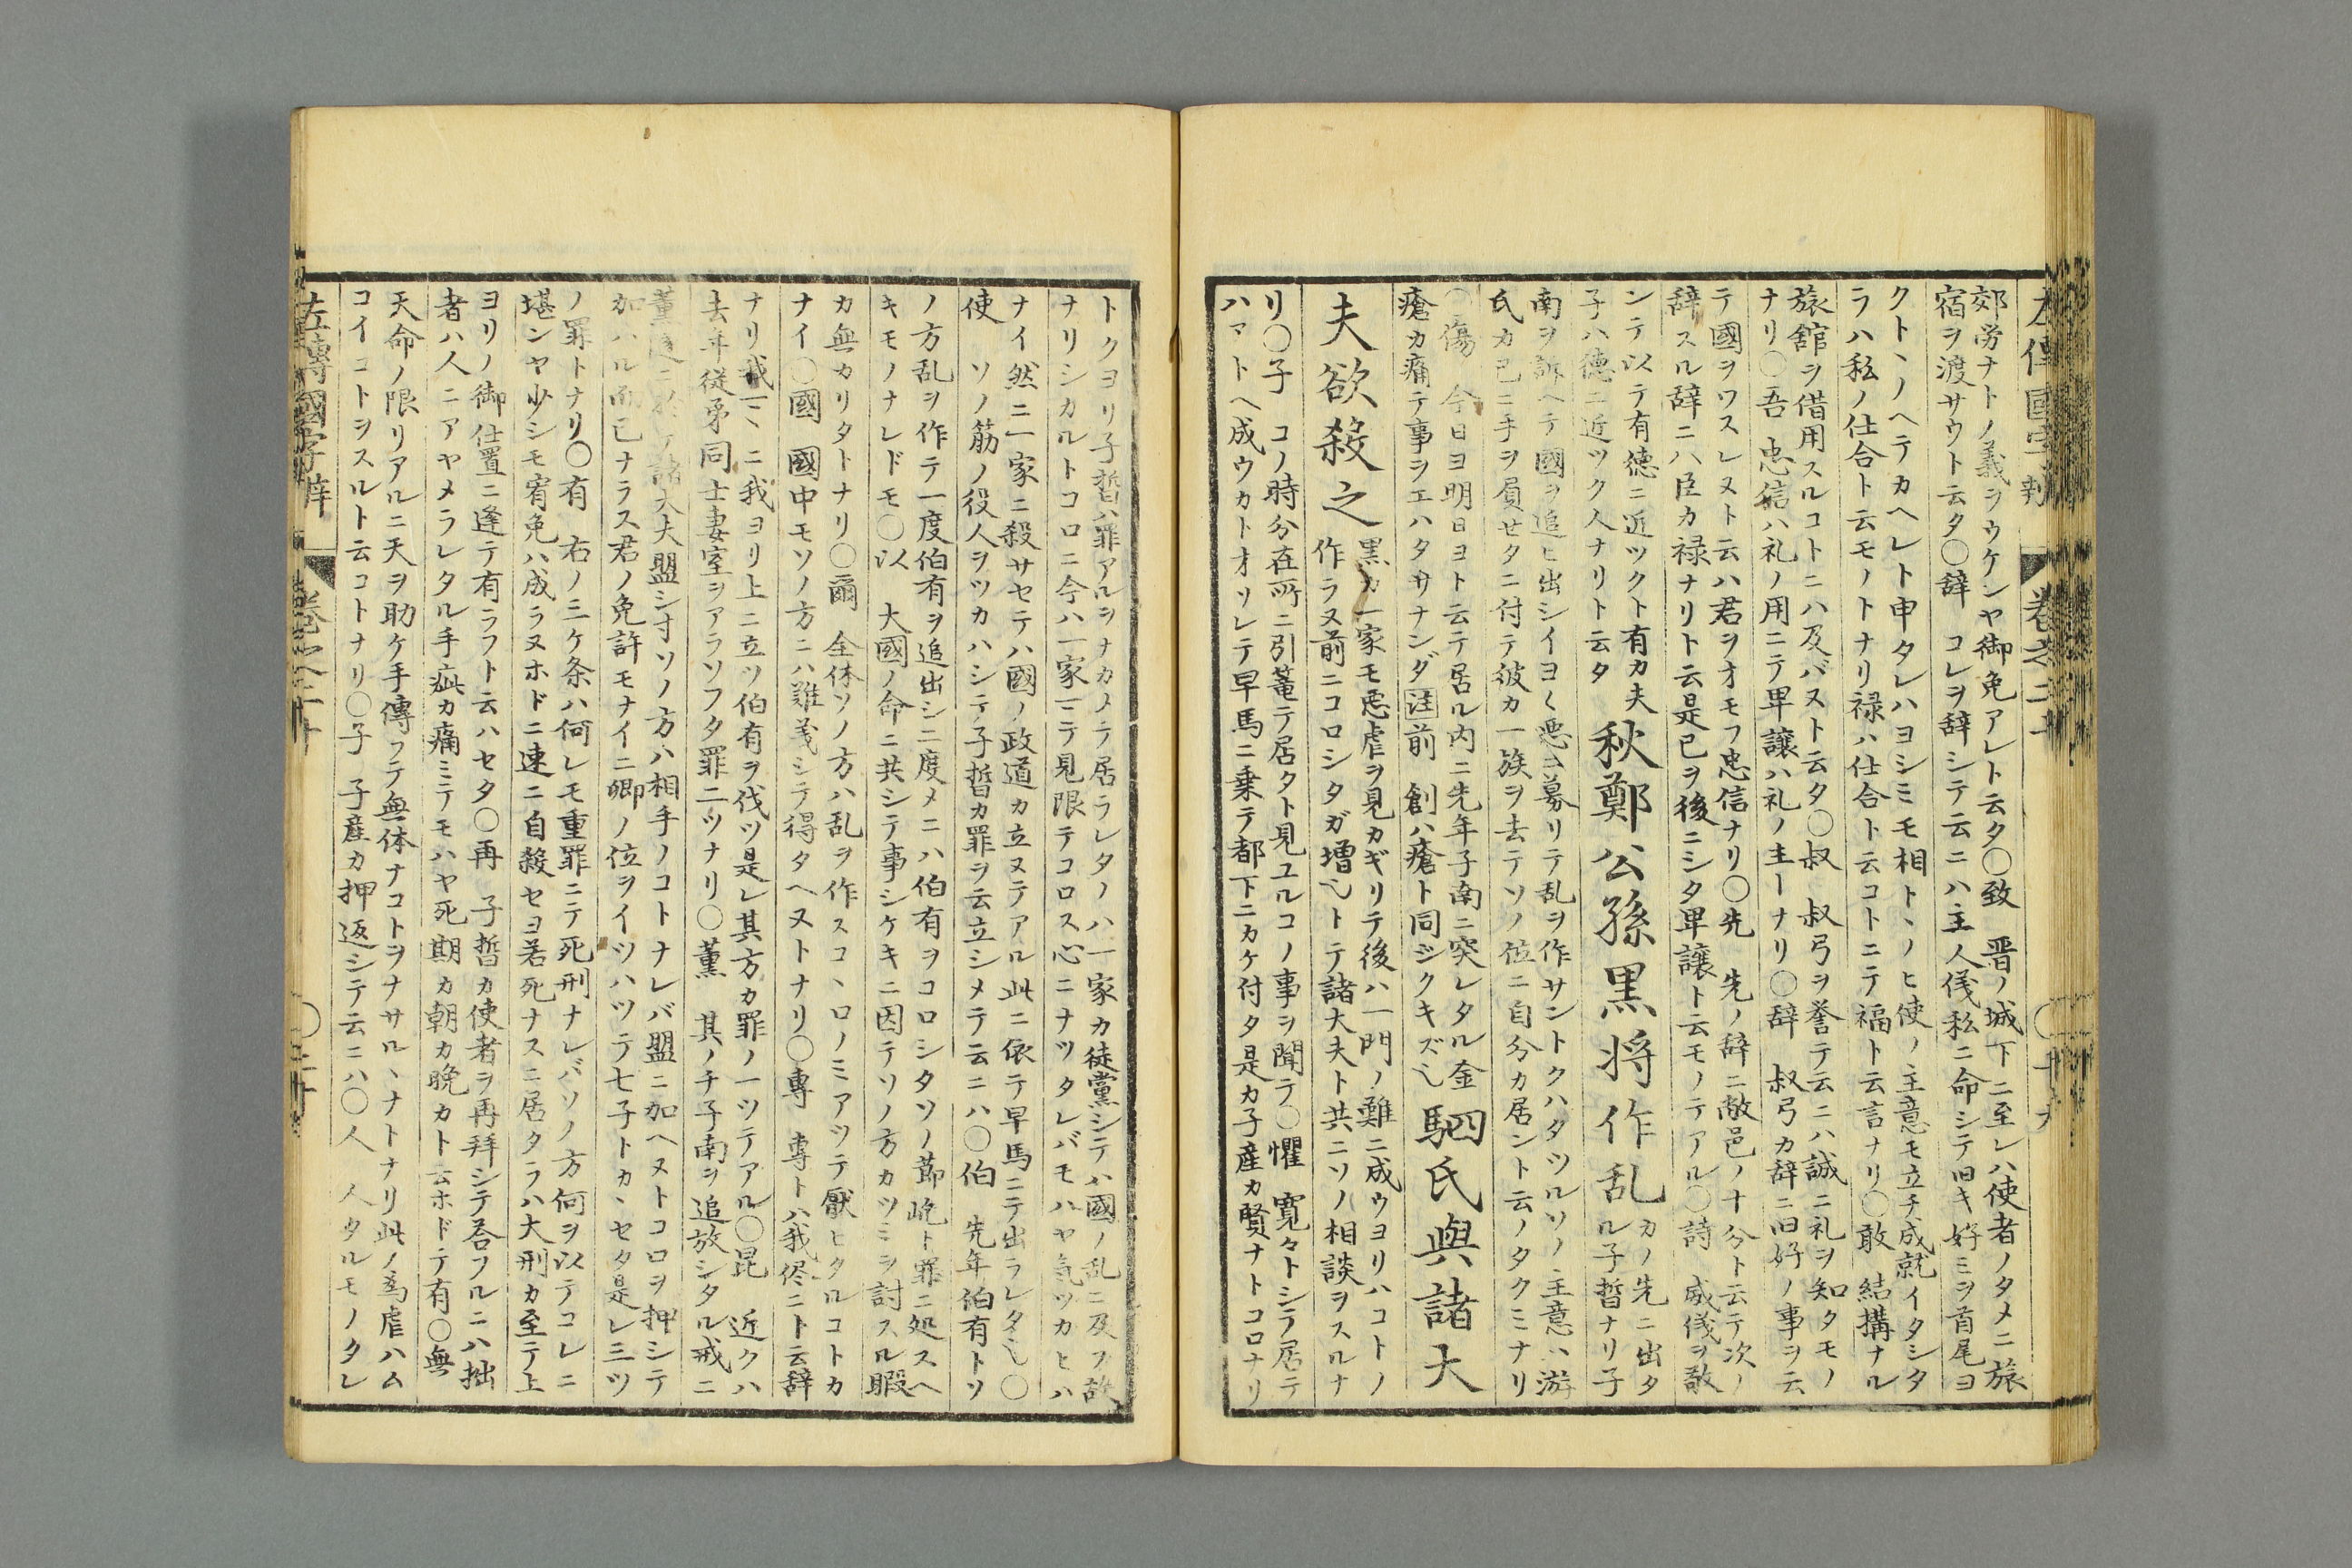 左傳國字辨 卷之二十 〇十九
郊労ナトノ義ヲウケンヤ御免アレト云タ〇致 晋ノ城下ニ至レハ使者ノタメニ旅
宿ヲ渡サウト云タ〇辞 コレヲ辞シテ云ニハ主人儀私ニ命シテ旧キ好ミヲ首尾ヨ
クトヽノヘテカヘレト申タレハヨシミモ相トヽノヒ使ノ主意モ立チ成就イタシタ
ラハ私ノ仕合ト云モノトナリ禄ハ仕合ト云コトニテ福ト云言ナリ〇敢 結構ナル
旅舘ヲ借用スルコトニハ及バヌト云タ〇叔 叔弓ヲ誉テ云ニハ誠ニ礼ヲ知タモノ
ナリ〇吾 忠信ハ礼ノ用ニテ卑譲ハ礼ノ主ーナリ〇辞 叔弓カ辞ニ旧好ノ事ヲ云
テ國ヲワスレヌト云ハ君ヲオモフ忠信ナリ〇先 先ノ辞ニ敝邑ノ十分ト云テ次ノ
辞スル辞ニハ臣カ禄ナリト云是已ヲ後ニシタ卑譲ト云モノテアル〇詩 威儀ヲ敬
ンテ以テ有徳ニ近ツクト有カ夫
子ハ德ニ近ツク人ナリト云タ
秋鄭公孫黒将作乱
カノ先ニ出タ
ル子晳ナリ子
南ヲ訴ヘテ國ヲ追ヒ出シイヨ〱悪コ募リテ乱ヲ作サントクハタツルソノ主意ハ游
氏カ已ニ手ヲ屓セタニ付テ彼カ一族ヲ去テソノ位ニ自分カ居ント云ノタクミナリ
〇傷 今日ヨ明日ヨト云テ居ル内ニ先年子南ニ突レタル金
瘡カ痛テ事ヲエハタサナンダ注前 創ハ瘡ト同ジクキズ也
駟氏與諸大
夫欲殺之
黒カ一家モ悪虐ヲ見カギリテ後ハ一門ノ難ニ成ウヨリハコトノ
作ラヌ前ニコロシタガ増也トテ諸大夫ト共ニソノ相談ヲスルナ
リ〇子 コノ時分在所ニ引篭テ居タト見ユルコノ事ヲ聞テ〇懼 寛々トシテ居テ
ハマトヘ成ウカトオソレテ早馬ニ乗テ都下ニカケ付タ是カ子産カ賢ナトコロナリ
トクヨリ子晳ハ罪アルヲナカメテ居ラレタノハ一家カ徒黨シテハ國ノ乱ニ及フ故
ナリシカルトコロニ今ハ一家ニテ見限テコロス心ニナツタレバモハヤ気ツカヒハ
ナイ然ニ一家ニ殺サセテハ國ノ政道カ立ヌテアル此ニ依テ早馬ニテ出ラレタ也〇
使 ソノ筋ノ役人ヲツカハシテ子晳カ罪ヲ云立シメテ云ニハ〇伯 先年伯有トソ
ノ方乱ヲ作テ一度伯有ヲ追出シ二度メニハ伯有ヲコロシタソノ節屹ト罪ニ処スヘ
キモノナレドモ〇以 大國ノ命ニ共シテ事シケキニ因テソノ方カツミヲ討スル暇
カ無カリタトナリ〇爾 全体ソノ方ハ乱ヲ作スコヽロノミアツテ厭ヒタルコトカ
ナイ〇國 國中モソノ方ニハ難義シテ得タヘヌトナリ〇専 専トハ我侭ニト云辞
ナリ我一ヽニ我ヨリ上ニ立ツ伯有ヲ伐ツ是レ其方カ罪ノ一ツテアル〇昆 近クハ
去年従弟同士妻室ヲアラソフタ罪二ツナリ〇薫 其ノチ子南ヲ追放シタル戒ニ
薫隧ニ於テ諸大夫盟シ寸ソノ方ハ相手ノコトナレバ盟ニ加ヘヌトコロヲ押シテ
加ハル而已ナラス君ノ免許モナイニ卿ノ位ヲイツハツテ七子トカヽセタ是レ三ツ
ノ罪トナリ〇有 右ノ三ケ条ハ何レモ重罪ニテ死刑ナレバソノ方何ヲ以テコレニ
堪ンヤ少シモ宥免ハ成ラヌホドニ速ニ自殺セヨ若死ナスニ居タラハ大刑カ至テ上
ヨリノ御仕置ニ逢テ有ラフト云ハセタ〇再 子晳カ使者ヲ再拜シテ答フルニハ拙
者ハ人ニアヤメラレタル手疵カ痛ミテモハヤ死期カ朝カ晩カト云ホドテ有〇無
天命ノ限リアルニ天ヲ助ケ手傳フテ無体ナコトヲナサルヽナトナリ此ノ為虐ハム
コイコトヲスルト云コトナリ〇子 子産カ押返シテ云ニハ〇人 人タルモノタレ
左傳國字辨 卷之二十 〇二十